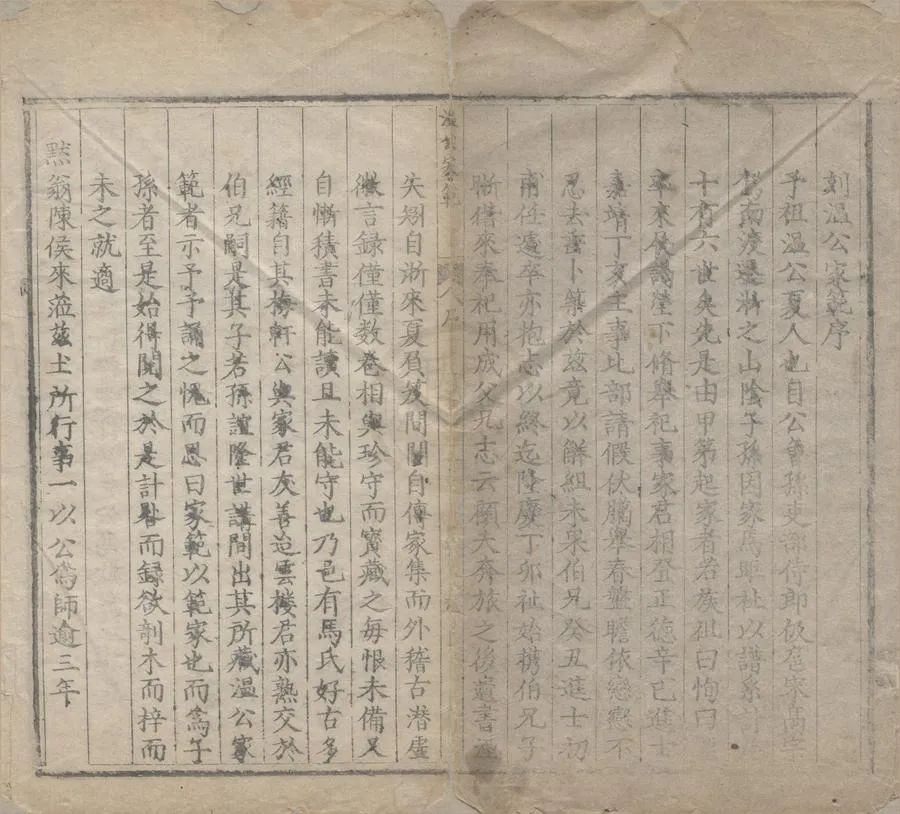 刻温公家範序
予祖温公夏人也自公曾孫吏部侍郎伋扈宋高宗
駕南渡遷浙之山隂子孫因家焉距祉以譜系
十有六世矣先是由甲第起家者若族祖曰恂曰
率來展謁塋下脩舉祀事家君相登正徳辛巳進士
嘉靖丁亥主事比部請假伏臈舉春盤瞻依戀戀不
忍去音卜築於兹竟以觧組未果伯兄癸丑進士初
甫任遽卒亦抱志以終迄隆慶丁卯祉始携伯兄子
晣偕來奉祀用成父兄志云顧大奔旅之後遺書
失矧自浙來夏負笈間關自傳家集而外稽古潜虛
徽言録僅僅數卷相與珍守而寳藏之每恨未備又
自慚積書未能讀且未能守也乃邑有馬氏好古多
經籍自其梅軒公與家君友善迨雲樓君亦熟交於
伯兄嗣是其子若孫誼隆世講間出其所藏温公家
範者示予予誦之愧而思曰家範以範家也而為子
孫者至是始得閱之於是計晷而録欲剞木而梓而
未之就適
黙翁陳侯來蒞兹土所行事一以公為師逾三年
温公家範
序